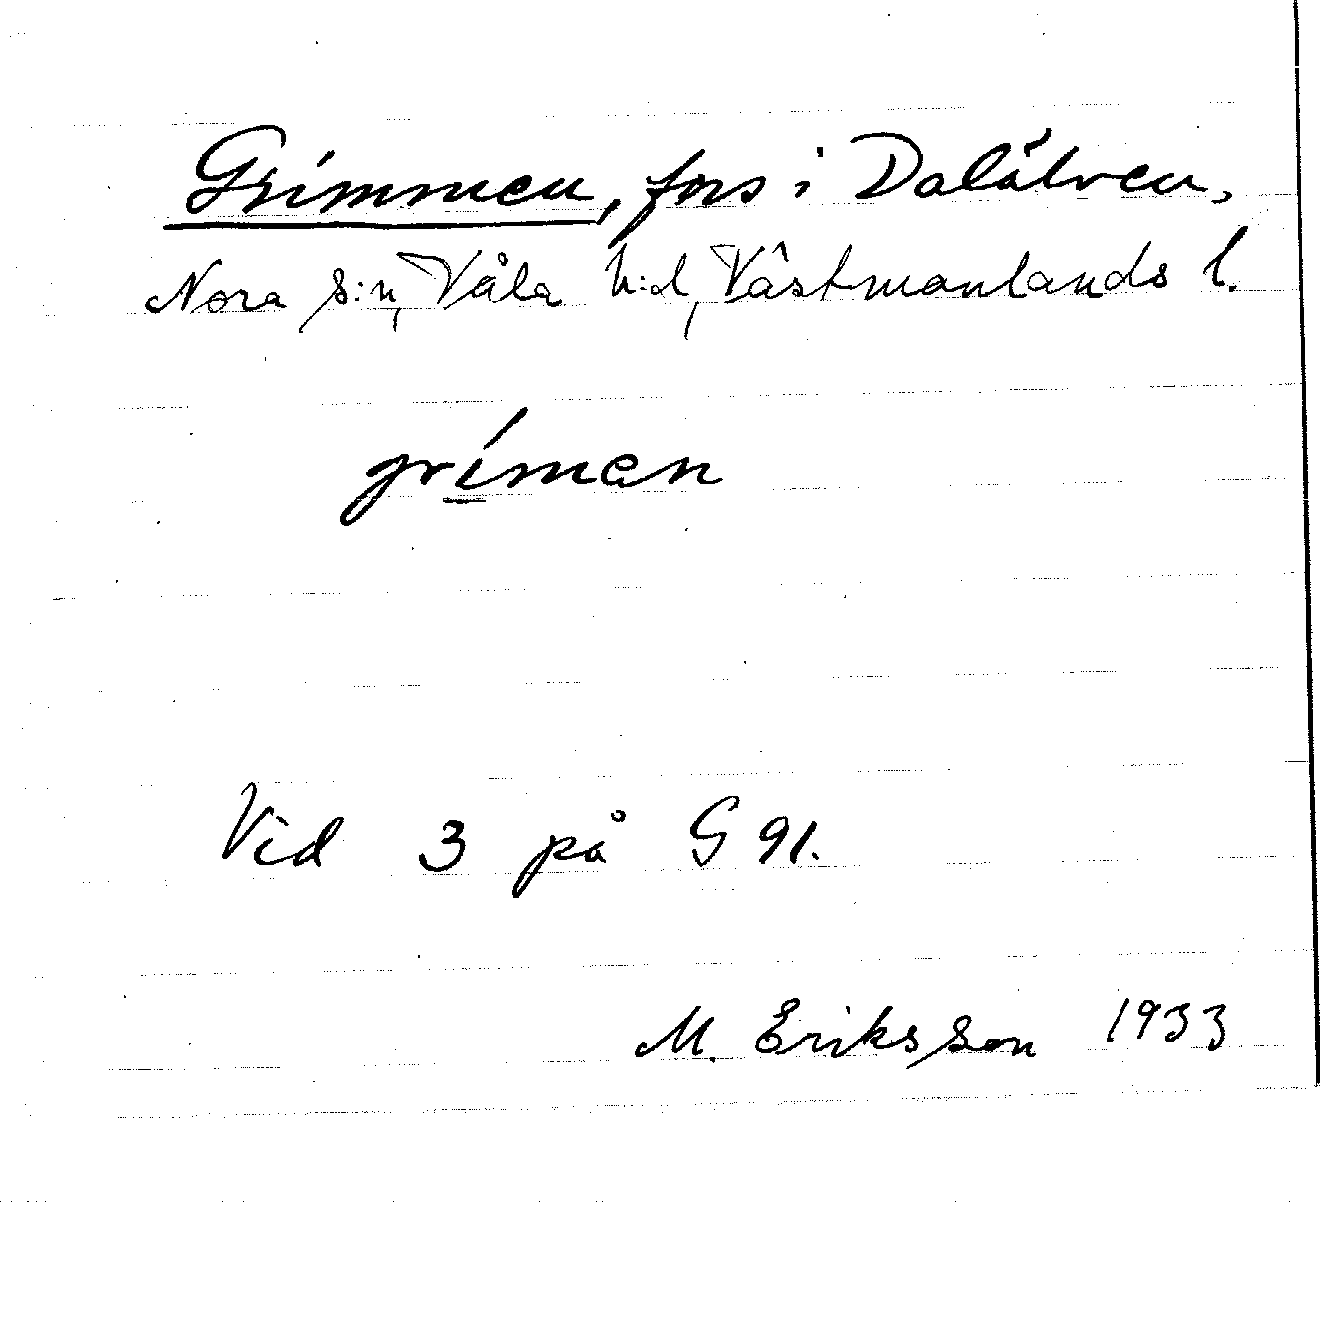 Grimmen, fors i Dalälven,
Nora s:n, Våla h:d, Västmanlands l.
gríman
Vid 3 på G 91.
M. Eriksson 1933